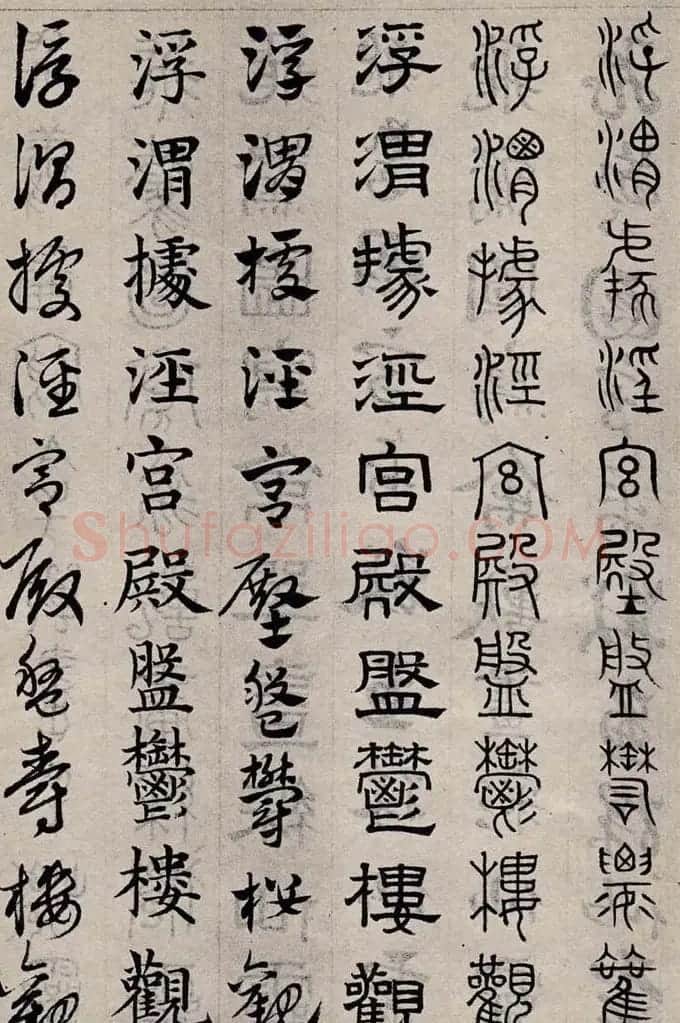 浮渭據涇宮殿盤鬱樓觀
浮渭據涇宮殿盤鬱樓觀
浮渭據涇宮殿盤鬱樓觀
浮渭據涇宮殿盤鬱樓觀
浮渭據涇宮殿盤鬱樓觀
浮渭據涇宮殿盤鬱樓觀
Shufaziliao.COM